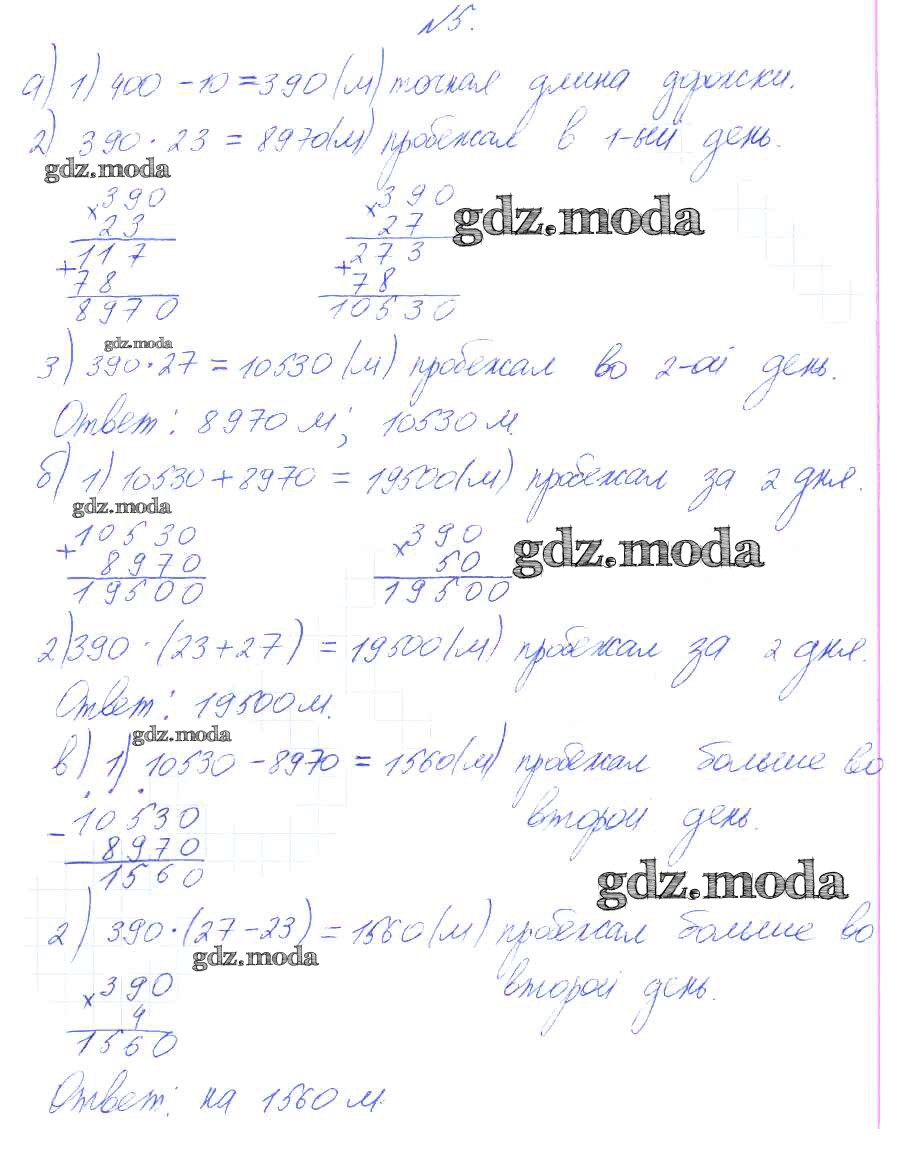 №5.
а) 1) 400 - 10 = 390 (м) точная длина дорожки.
2) 390 · 23 = 8970 (м) пробежал в 1-ый день.
gdz.moda
× 390
23
+ 117
78
8970
× 390
27
+ 273
78
10530
gdz.moda
gdz.moda
3) 390 · 27 = 10530 (м) пробежал во 2-ой день.
Ответ: 8970 м; 10530 м.
б) 1) 10530 + 8970 = 19500 (м) пробежал за 2 дня.
gdz.moda
+ 10530
8970
19500
× 390
50
19500
gdz.moda
2) 390 · (23 + 27) = 19500 (м) пробежал за 2 дня.
Ответ: 19500 м.
gdz.moda
в) 1) 10530 - 8970 = 1560 (м) пробежал больше во
второй день.
- 10530
8970
1560
gdz.moda
2) 390 · (27 - 23) = 1560 (м) пробежал больше во
второй день.
gdz.moda
× 390
4
1560
Ответ: на 1560 м.